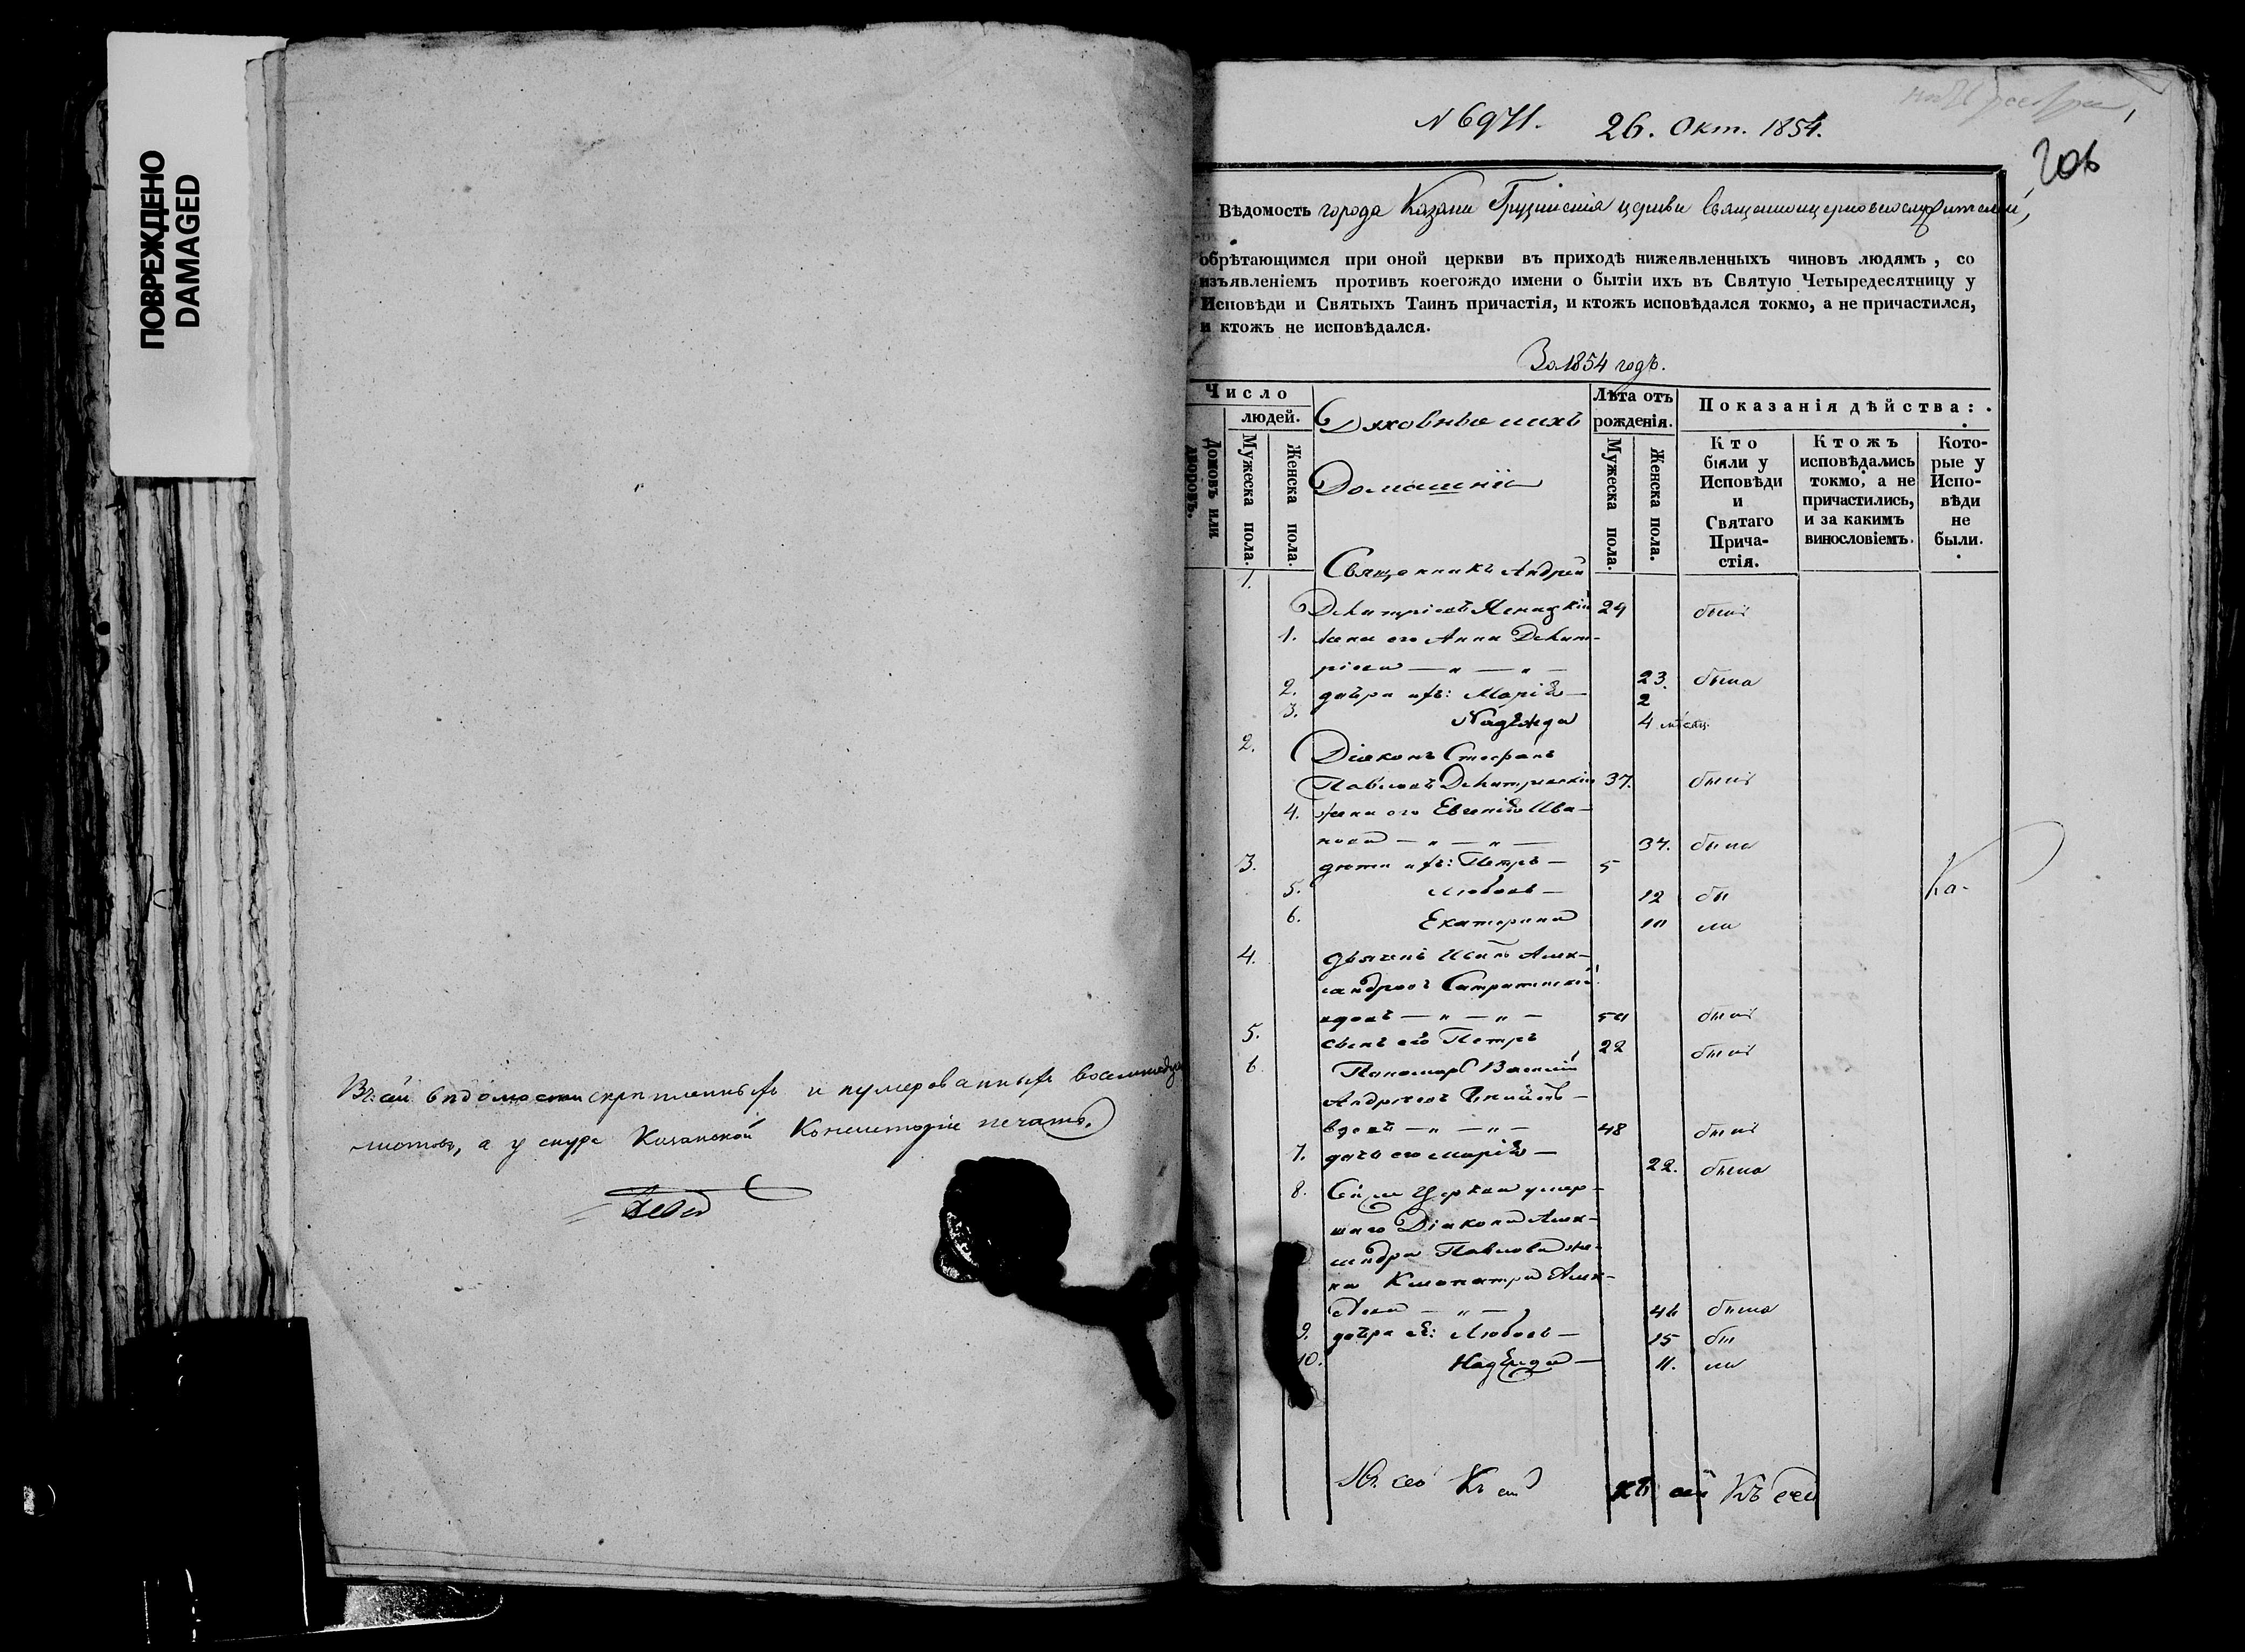 ПОВРЕЖДЕНО
DAMAGED
Въ сей вѣдомости скрѣпленныхъ и нумерованныхъ
листовъ, а у снура Казанской Консисторіи печать.
N 6971. 26. Окт. 1854.
206
Вѣдомость города Казани Грузинскія церкви священноцерковнослужителей,
обрѣтающимся при оной церкви въ приходѣ нижеявленныхъ чиновъ людямъ, со
изъявленіемъ противъ коегождо имени о бытіи ихъ въ Святую Четыредесятницу у
Исповѣди и Святыхъ Таинъ причастія, и ктожъ исповѣдался токмо, а не причастился,
и ктожъ не исповѣдался.
За 1854 годъ.
Число
людей.
Домовъ или дворовъ.
Мужеска пола.
Женска пола.
Духовные и ихъ
Домашніе
Лѣта отъ
рожденія.
Мужеска пола.
Женска пола.
Показанія дѣйства:
Кто
были у
Исповѣди
и
Святаго
Прича-
стія.
Ктожъ
исповѣдались
токмо, а не
причастились,
и за какимъ
винословіемъ.
Кото-
рые у
Испо-
вѣди
не
были.
1. Священникъ Андрей
Димитріевъ 29 былъ
1. Жена его Анна Димит-
ріева — „ — „ — 23. была
2. дочери ихъ: Марія — 2
3. Надежда 4 мѣсяц.
2. Діаконъ Стефанъ
Павловъ Димитріевскій 37. былъ
4. Жена его Евгенія Ива-
нова — „ — „ — 34. была
3. дѣти ихъ: Петръ — 5
5. Любовь — 12 бы
6. Екатерина 10 ла
4. Дьячекъ Иванъ Алек-
сандровъ
вдовъ — „ — „ — 50 былъ
5. сынъ его Петръ 22 былъ
6 Пономарь Василій
Андреевъ
вдовъ — „ — „ — 48 былъ
7. дочь его Марія — 22. была
8. Сей же Церкви умер-
шаго Діакона Алек-
сандра Павлова же-
на Клеопатра Алек-
сѣева — „ — 46 была
9. дочери ея: Любовь — 15 бы
10. Надежда — 11. ла
Ка-
Къ сей Къ сей